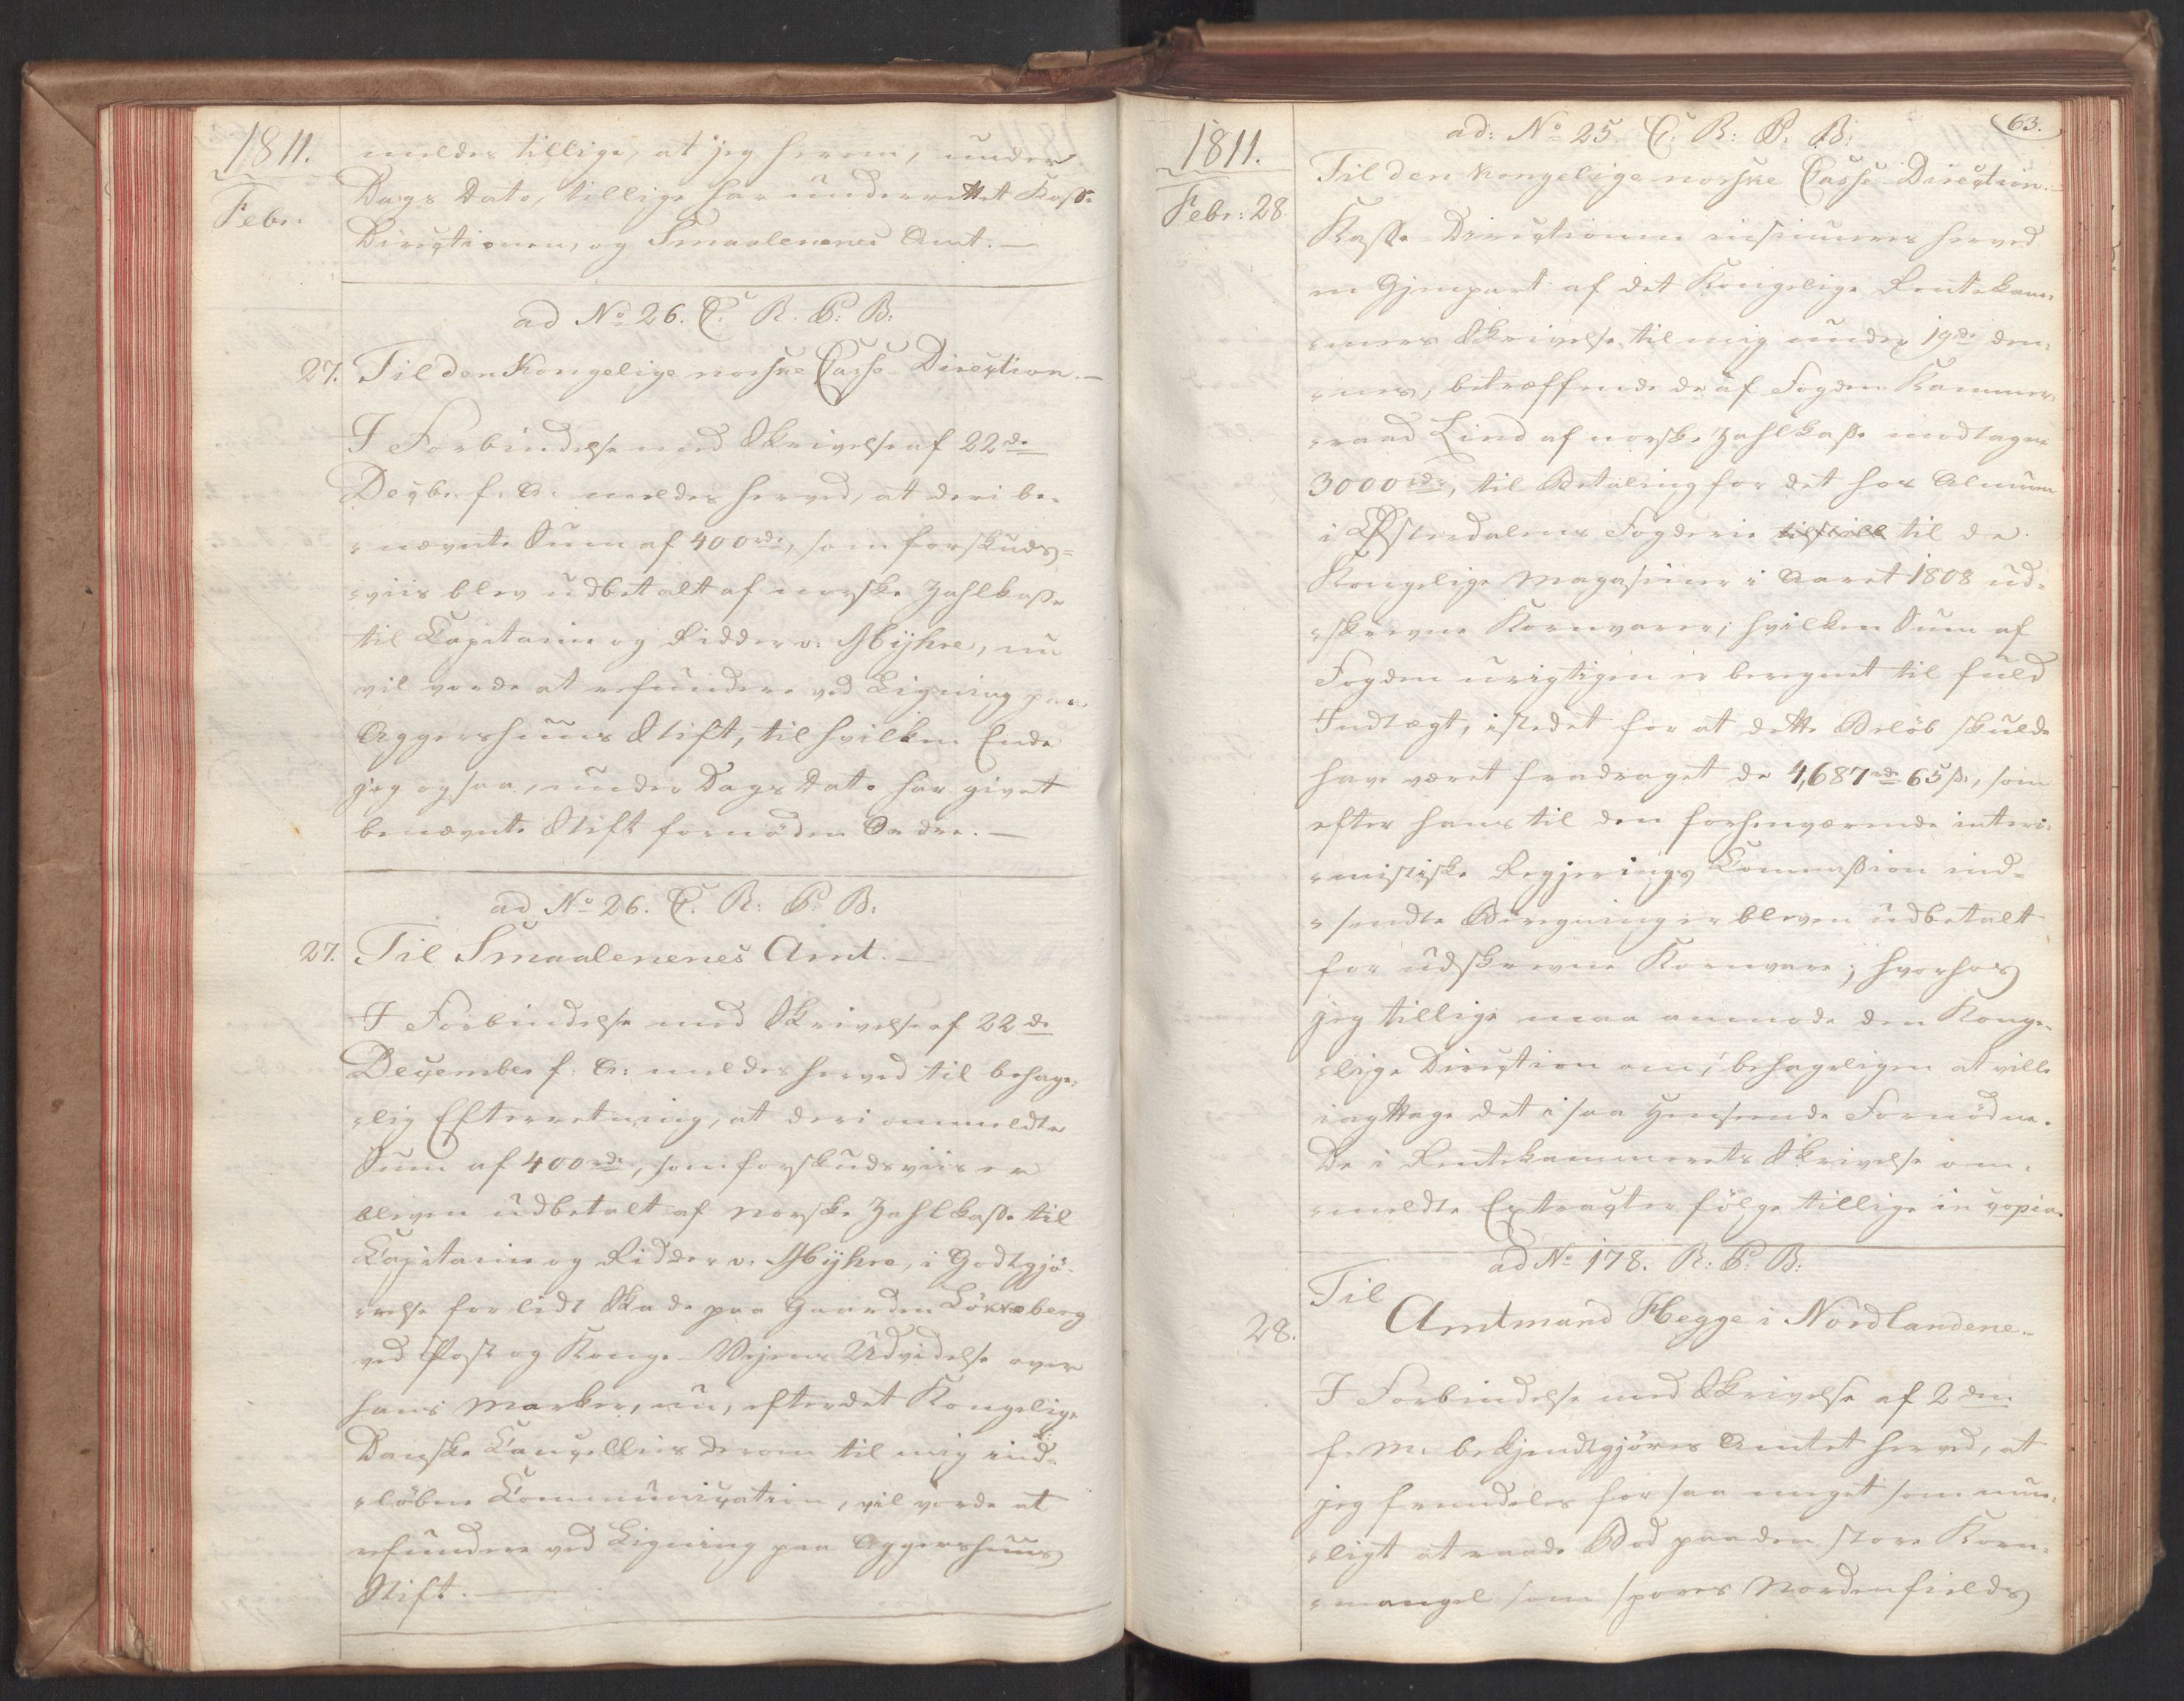 1811.
Febr:
meldes tillige, at jeg herom, under
Dags Dato, tillige har underrettet Kasse
Directionen, og Smaalenenes Amt. —
ad No 26. C. R. P. B:
27. Til den Kongelige norske Casse-Direction. —
I Forbindelse med Skrivelse af 22de
Decbr. f. A. meldes herved, at deri be-
nævnte Sum af 400 rdr, som forskuds-
viis blev udbetalt af norske Zahlkasse
til Capitaine og Ridder v. Hÿhre, nu
vil vorde at refundere ved Ligning paa
Aggershuus Stift, til hvilken Ende
jeg ogsaa, under Dags Dato har givet
benævnte Stift fornöden Ordre. —
ad No 26. C. R: P. B:
27. Til Smaalenenes Amt. —
I Forbindelse med Skrivelse af 22de
December f: A: meldes herved til behage-
lig Efterretning, at deri ommeldte
Sum af 400 rdr, som forskudsviis er
bleven udbetalt af norske Zahlkasse til
Capitaine og Ridder v. Hÿhre, i Godtgjö-
relse for lidt Skade paa Gaarden Lökkeberg
ved Post og Konge-Veiens Udvidelse over
hans Marker, nu, efter det Kongelige
Danske Cancellies derom til mig ind-
löbne Communication, vil vorde at
refundere ved Ligning paa Aggershuus
Stift. —
63.
1811.
Febr: 28.
ad: No 25 C. R: P. B:
Til den Kongelige norske Casse-Direction. —
Kasse-Directionen insinueres herved
en Gjenpart af det Kongelige Rentekam-
mers Skrivelse til mig under 19de den-
nes, betræffende de af Fogden Kammer-
raad Lind af norske Zahlkasse modtagne
3000 rdr, til Betaling for det hos Almuen
i Österdalens Fogderie til de
Kongelige Magasiner i Aaret 1808 ud-
skrevne Kornvarer; hvilken Sum af
Fogden urigtigen er beregnet til fuld
Indtægt, istedet for at dette Belöb skulde
have været fradraget de 4,687 rdr 65 s, som
efter hans til den forhenværende interi-
mistiske Regjerings Commission ind-
sendte Beregning er bleven udbetalt
for udskrevne Kornvare; hvorhos
jeg tillige maa anmode den Konge-
lige Direction om, behageligen at ville
iagttage det i saa Henseende Fornödne.
De i Rentekammerets Skrivelse om-
meldte Extracter fölge tillige in copia.
ad No 178. R: P. B:
28.
Til
Amtmand Hegge i Nordlandene. —
I Forbindelse med Skrivelse af 2den
f. M. bekjendtgjöres Amtet herved, at
jeg fremdeles for saa meget som mue-
ligt at raade Bod paa den store Korn-
mangel som spores Nordenfields